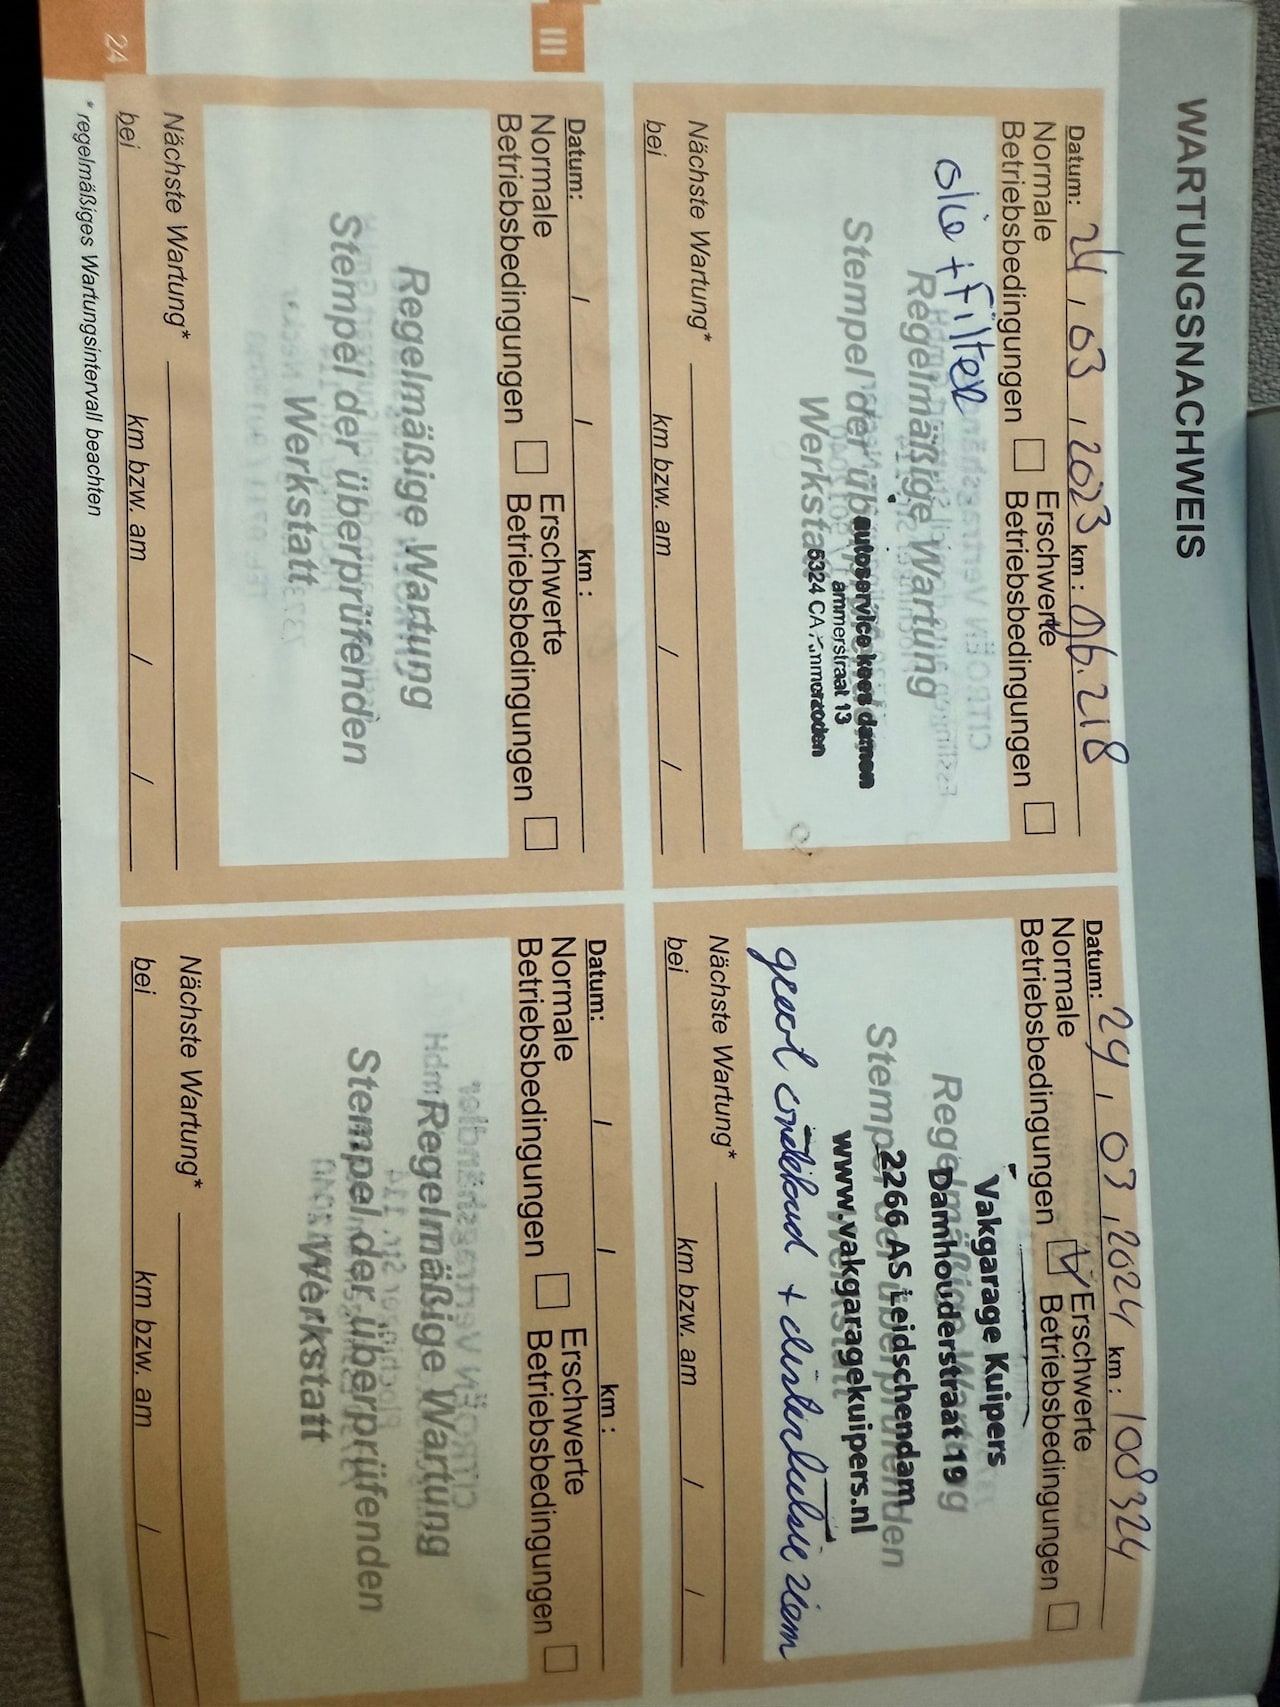 WARTUNGSNACHWEIS
Datum: 24 / 03 / 2023 km : 96.218
Normale Betriebsbedingungen Erschwerte Betriebsbedingungen
olie + filter
Regelmäßige Wartung
Stempel der
Werkstatt
autoservice kees damen
ammerstraat 13
5324 CA Ammerzoden
Nächste Wartung*
bei km bzw. am / /
Datum: 29 / 03 / 2024 km : 108324
Normale Betriebsbedingungen Erschwerte Betriebsbedingungen
Regelmäßige Wartung
Stempel der überprüfenden
Werkstatt
Vakgarage Kuipers
Damhouderstraat 19
2266 AS Leidschendam
www.vakgaragekuipers.nl
groot onderhoud + distributie riem
Nächste Wartung*
bei km bzw. am / /
III
Datum: / / km :
Normale Betriebsbedingungen Erschwerte Betriebsbedingungen
Regelmäßige Wartung
Stempel der überprüfenden
Werkstatt
Nächste Wartung*
bei km bzw. am / /
Datum: / / km :
Normale Betriebsbedingungen Erschwerte Betriebsbedingungen
Regelmäßige Wartung
Stempel der überprüfenden
Werkstatt
Nächste Wartung*
bei km bzw. am / /
24
* regelmäßiges Wartungsintervall beachten